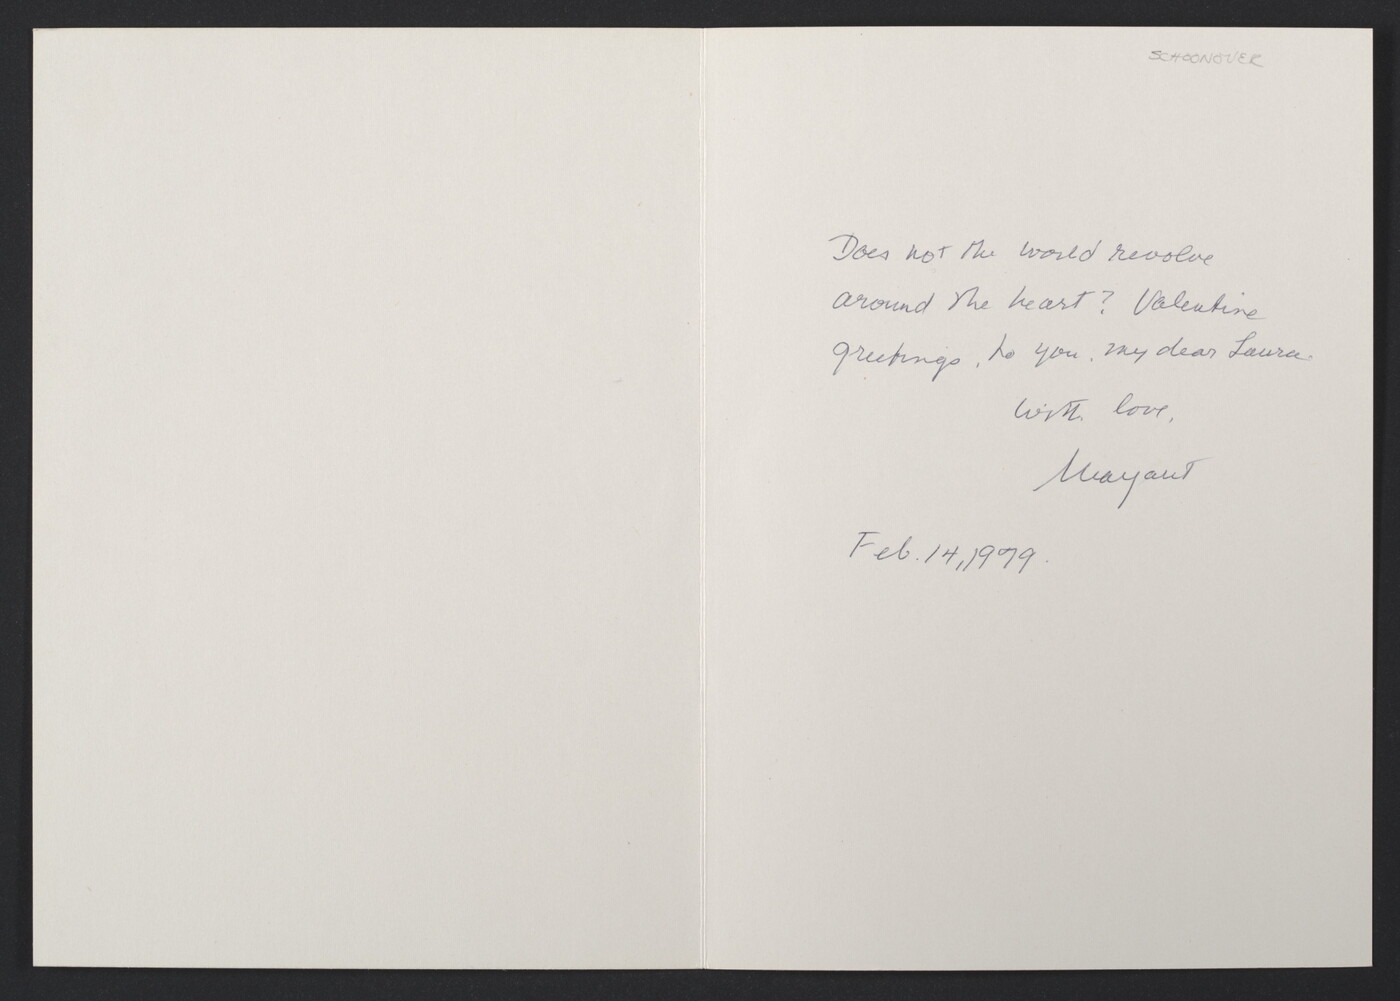 SCHOONOVER
Does not the world revolve
around the heart? Valentine
greetings, to you, my dear Laura.
With love,
Margaret
Feb. 14, 1979.